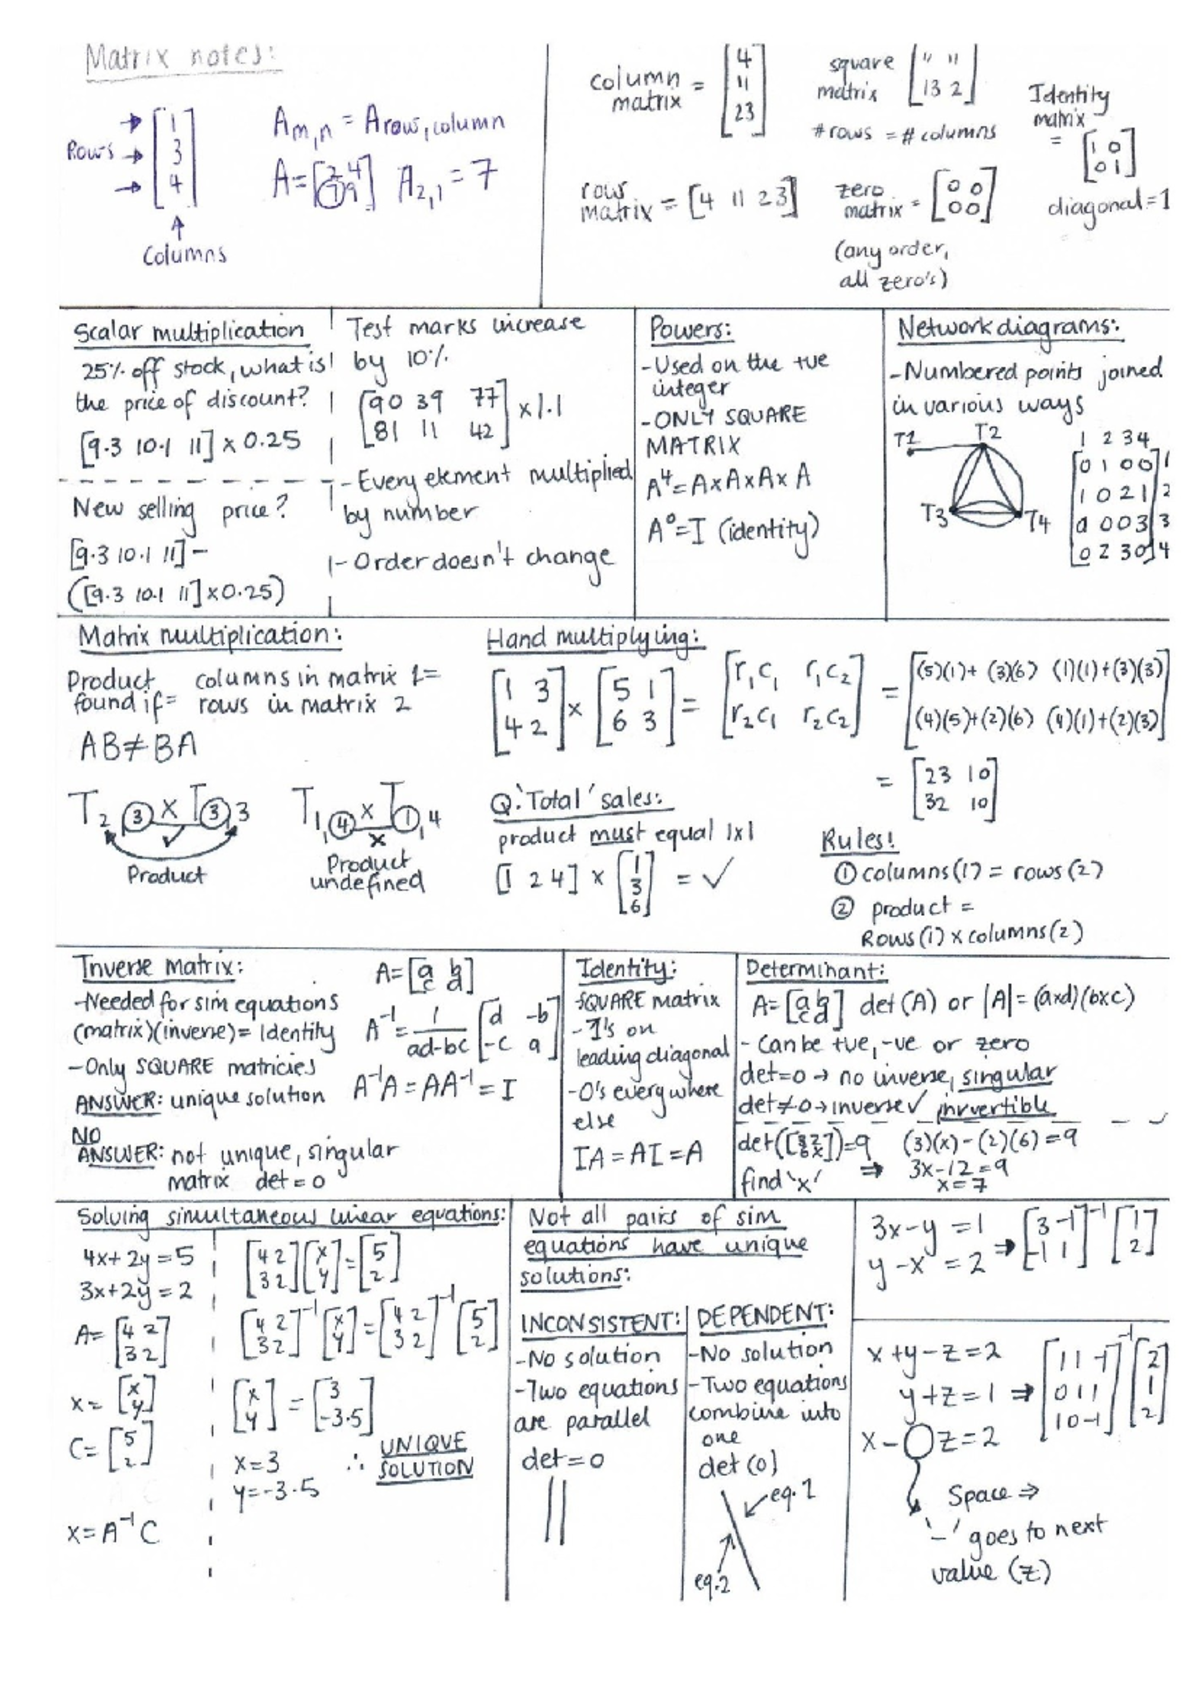 Matrix notes:
Rows → [1
→ 3
→ 4]
↑
Columns
Am,n = Arow,column
A = [2 4
7 9] A2,1 = 7
column matrix = [4
11
23]
row matrix = [4 11 23]
square matrix [4 11
13 2]
#rows = #columns
zero matrix = [0 0
0 0]
(any order,
all zero's)
Identity matrix
= [1 0
0 1]
diagonal = 1
Scalar multiplication
25% off stock, what is
the price of discount?
[9.3 10.1 11] x 0.25
New selling price?
[9.3 10.1 11] -
([9.3 10.1 11] x 0.25)
Test marks increase
by 10%
[90 39 77
81 11 42] x 1.1
- Every element multiplied
by number
- Order doesn't change
Powers:
- Used on the +ve
integer
- ONLY SQUARE
MATRIX
A⁴ = A x A x A x A
A⁰ = I (identity)
Network diagrams:
- Numbered points joined
in various ways
T1 T2
T3 T4
1 2 3 4
[0 1 0 0] 1
1 0 2 1 2
0 0 0 3 3
[0 2 3 0] 4
Matrix multiplication:
Product found if = columns in matrix 1 =
rows in matrix 2
AB ≠ BA
T2 (3) x T(3) 3
✓
Product
T1,(4) x T(1),4
x
Product
undefined
Hand multiplying:
[1 3
4 2] x [5 1
6 3] = [r₁c₁ r₁c₂
r₂c₁ r₂c₂] = [(5)(1)+(3)(6) (1)(1)+(3)(3)
(4)(5)+(2)(6) (4)(1)+(2)(3)]
= [23 10
32 10]
Q: 'Total' sales:
product must equal 1x1
[1 2 4] x [1
3
6] = ✓
Rules!
① columns(1) = rows(2)
② product =
Rows(1) x columns(2)
Inverse matrix:
- Needed for sim equations
(matrix)(inverse) = Identity
- Only SQUARE matricies
ANSWER: unique solution
NO
ANSWER: not unique, singular
matrix det = 0
A = [a b
c d]
A⁻¹ = 1/ad-bc [d -b
-c a]
A⁻¹A = AA⁻¹ = I
Identity:
- SQUARE matrix
- 1's on
leading diagonal
- 0's everywhere
else
IA = AI = A
Determinant:
A = [a b
c d] det(A) or |A| = (axd)(bxc)
- Can be +ve, -ve or zero
det=0 → no inverse, singular
det≠0 → inverse ✓ invertible
det([3 2
6 x]) = 9 (3)(x) - (2)(6) = 9
find 'x' ⇒ 3x-12=9
x=7
Solving simultaneous linear equations:
4x + 2y = 5
3x + 2y = 2
A = [4 2
3 2]
x = [x
y]
C = [5
2]
x = A⁻¹C
[4 2
3 2] [x
y] = [5
2]
[4 2
3 2]⁻¹ [x
y] = [4 2
3 2]⁻¹ [5
2]
[x
y] = [3
-3.5]
x = 3
y = -3.5
∴ UNIQUE
SOLUTION
Not all pairs of sim
equations have unique
solutions:
INCONSISTENT:
- No solution
- Two equations
are parallel
det = 0
DEPENDENT:
- No solution
- Two equations
combine into
one
det (0)
eq.1
eq.2
3x - y = 1
y - x = 2 ⇒ [3 -1
-1 1]⁻¹ [1
2]
x + y - z = 2
y + z = 1 ⇒
x - z = 2
[1 1 -1
0 1 1
1 0 -1]⁻¹ [2
1
2]
Space ⇒
'-' goes to next
value (z)